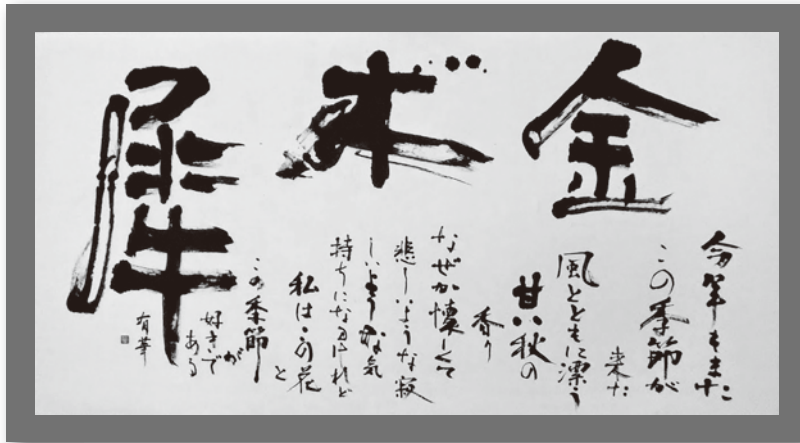 金木犀
今年もまた
この季節が
来た
風とともに漂う
甘い秋の
香り
なぜか懐しくて
悲しいような寂
しいような気
持ちになるけれど
私はこの花
と
この季節
が
好きで
ある
有華